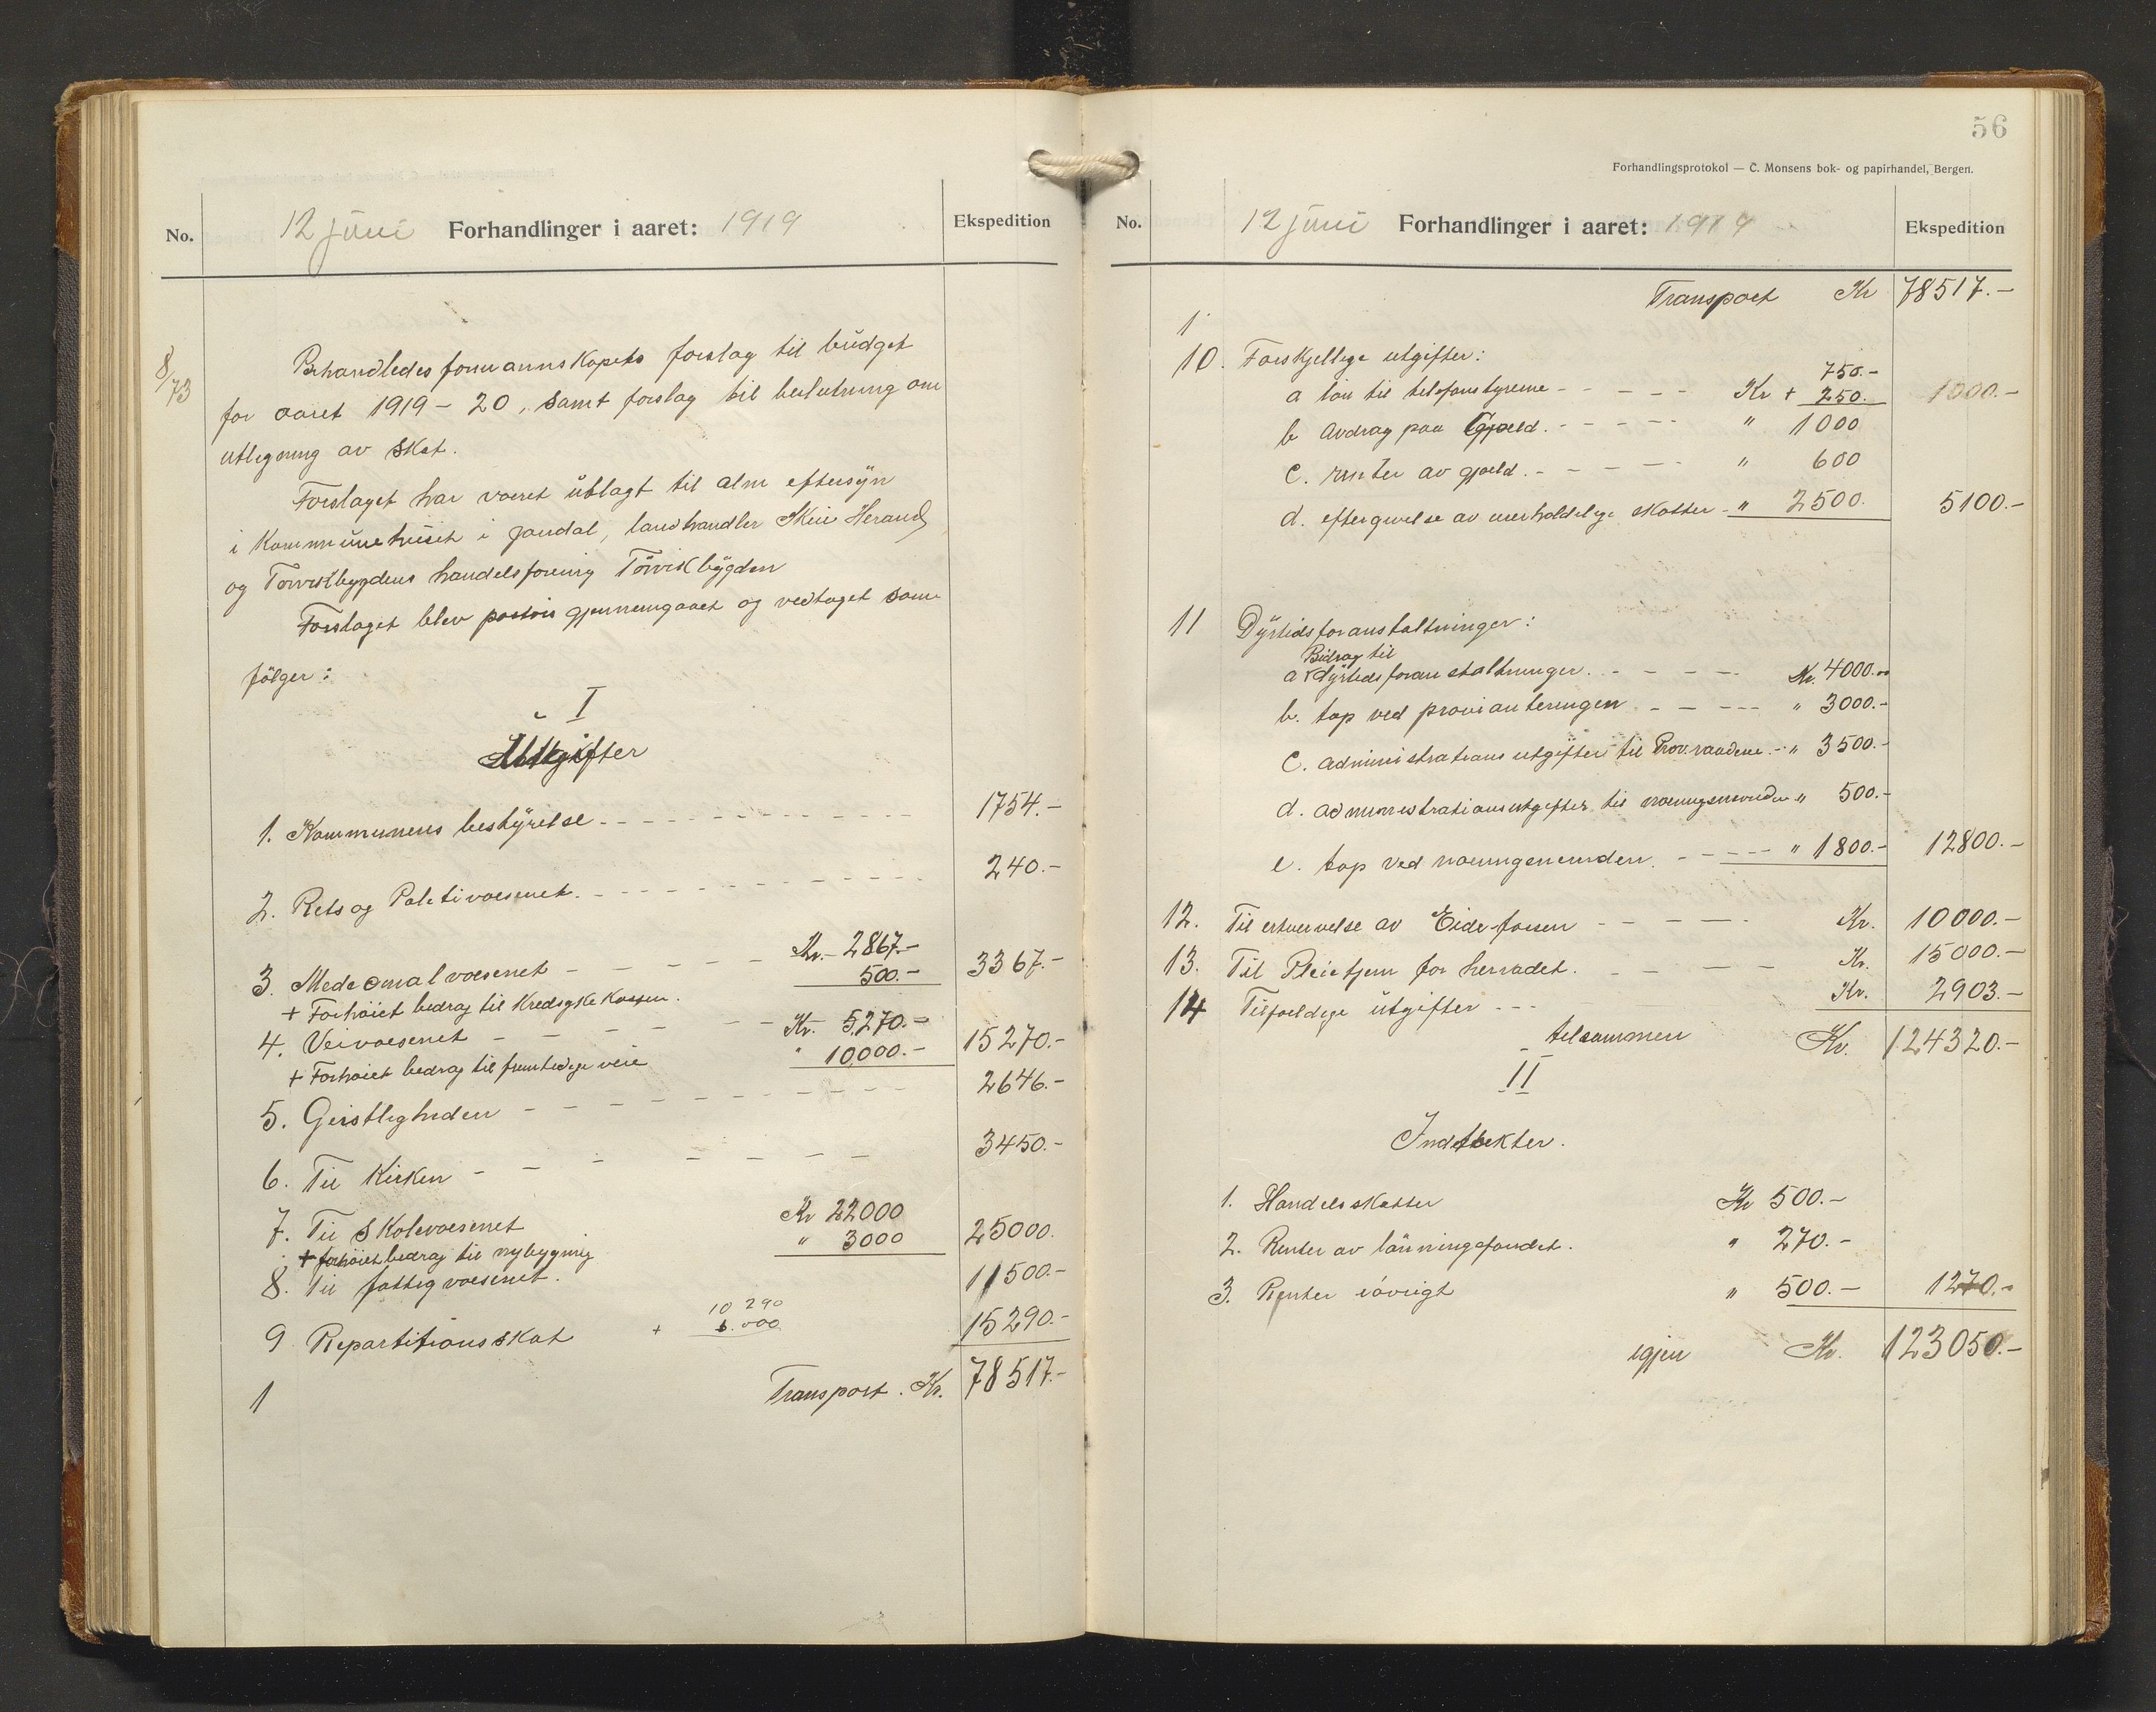 No. 12 juni Forhandlinger i aaret: 1919 Ekspedition
8/73
Behandledes formannskapets forslag til budget
for aaret 1919 - 20, samt forslag til beslutning om
utlegning av skat.
Forslaget har været utlagt til alm eftersyn
i Kommunehuset i Jondal, landhandler Skeie Herand
og Tørvikbygdens handelsforening Tørvikbygden
Forslaget blev postvis gjennemgaaet og vedtaget som
følger:
I
Utgifter
1. Kommunens bestyrelse - - - - 1754.-
2. Rets og Politivæsenet. - - - - 240.-
3. Medecinalvæsenet - - - - Kr. 2867.-
+ Forhøiet bedrag til Kredsykekassen. 500.- 3367.-
4. Veivæsenet - - - - Kr. 5270.-
+ Forhøiet bedrag til fremtidige veie " 10,000.- 15270.-
5. Geistligheden - - - - 2646.-
6. Til Kirken - - - - 3450.-
7. Til Skolevæsenet Kr 22000
+ forhøiet bedrag til nybygning " 3000 25000.
8. Til fattigvæsenet. 11500.-
10 290
9 Repartitionsskat + 5.000 15290.-
1 Transport. Kr. 78517.-
56
Forhandlingsprotokol — C. Monsens bok- og papirhandel, Bergen.
No. 12 juni Forhandlinger i aaret: 1919 Ekspedition
Transport Kr 78517.-
1
10. Forskjellige utgifter:
750.-
a løn til telefonstyrerne - - - - Kr + 250. 1000.-
b Avdrag paa Gjæld. - - - - " 1000
c. renter av gjæld. - - - - " 600
d. eftergivelse av uerholdelige skatter - " 2500. 5100.-
11 Dyrtidsforanstaltninger:
Bidrag til
a dyrtidsforanstaltninger. - - - - Kr. 4000.00
b. tap ved provianteringen - - - - " 3000.-
c. administrationsutgifter til Prov.raadene - " 3500.-
d. administrationsutgifter til næringsnevnden " 500.-
e. tap ved næringsnemnden. - - - - " 1800.- 12800.-
12. Til erhvervelse av Eidefossen - - - - Kr. 10000.-
13. Til Pleiehjem for herredet. - - - - Kr. 15000.-
14 Tilfældige utgifter - - - Kr. 2903.-
tilsammen Kr. 124320.-
II
Indtekter.
1. Handelsskatter Kr 500.-
2. Renter av lønningsfondet. " 270.-
3. Renter iøvrigt " 500.- 1270.-
igjen Kr. 123050.-